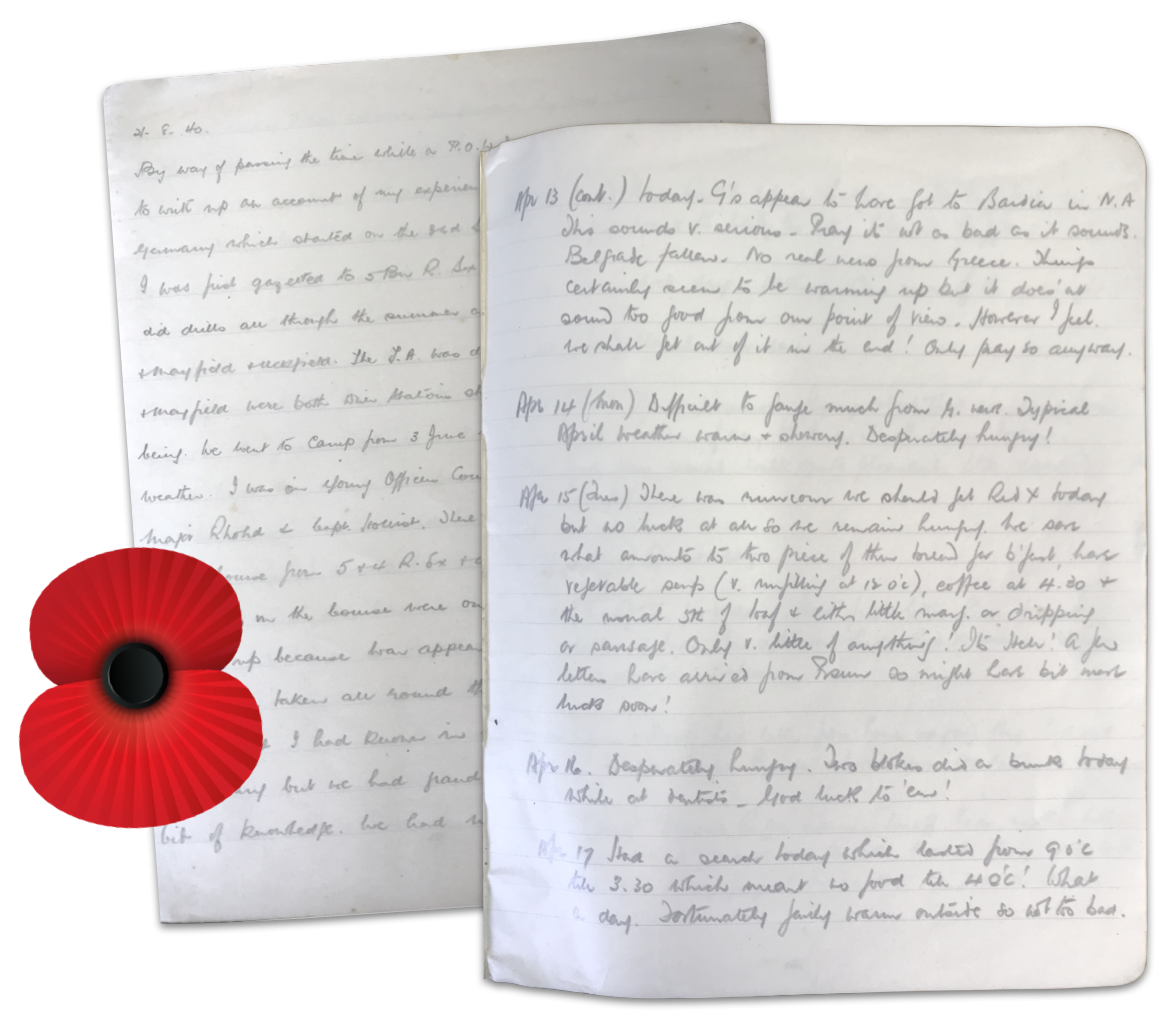 21. 8. 40.
By way of passing the time while a P.O.W.
to write up an account of my experien
Germany which started on the 3rd S
I was first gazetted to 5 Bn R. Sx
did drills all through the summer a
+ Mayfield + Uckfield. The T.A. was d
+ Mayfield were both
being. We went to Camp from 3 June
weather. I was on Young Officers Cour
Major & Capt There
course from 5 & 4 R. Sx + a
on the course were on
up because war appear
taken all round th
I had known in
but we had
bit of knowledge. We had
Apr 13 (cont.) today. G's appear to have got to Bardia in N.A
This sounds v. serious. Pray it's not as bad as it sounds.
Belgrade fallen. No real news from Greece. Things
certainly seem to be warming up but it does'nt
sound too good from our point of view. However I feel
we shall get out of it in the end! Only pray so anyway.
Apr 14 (Mon) Difficult to gauge much from G. news. Typical
April weather warm + showery. Desperately hungry!
Apr 15 (Tues) There was rumour we should get Red X today
but no luck at all so we remain hungry. We
what amounts to two piece of thin bread for b'fast, have
vegetable soup (v. unfilling at 12 o'c), coffee at 4.30 +
the usual 5th of loaf & either little marg. or dripping
or sausage. Only v. little of anything! It's Hell! A few
letters have arrived from so might have bit more
luck soon!
Apr 16. Desperately hungry. Two blokes did a bunk today
while at dentists _ Good luck to 'em!
Apr 17 Had a search today which lasted from 9 o'c
till 3.30 which meant no food till 4 o'c! What
a day. Fortunately fairly warm outside so not too bad.